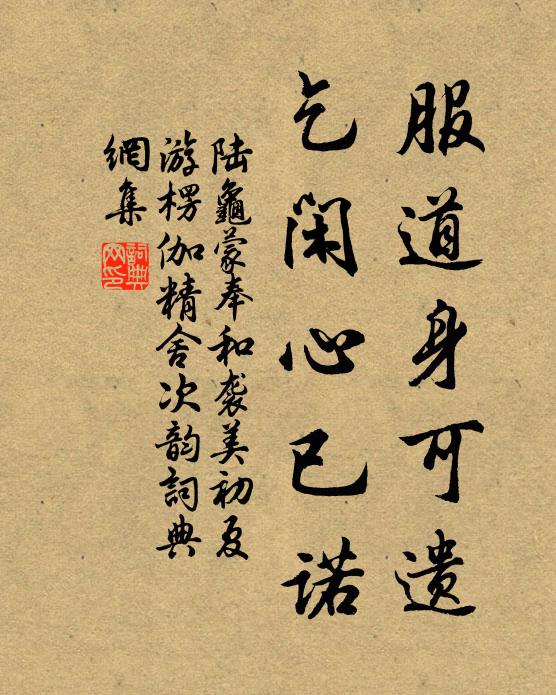 服道身可遗
乞闲心已诺
陆龜蒙奉和袭美初夏
游楞伽精舍次韵詞典
網集
詞典
网印